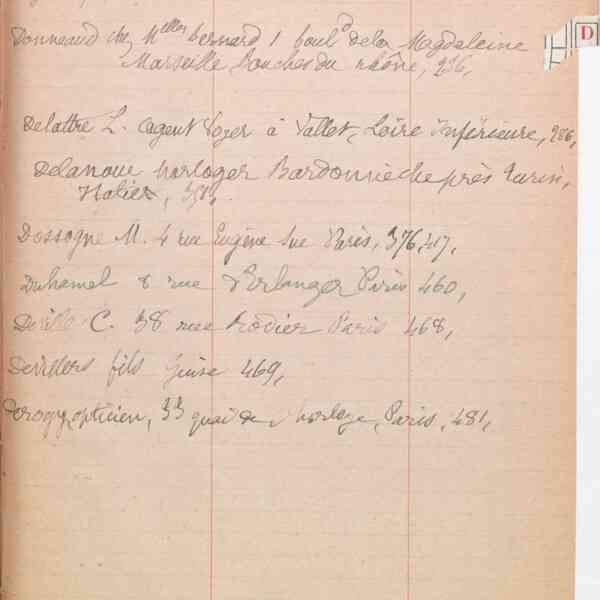 D
Donneaud chez Melles bernard 1 bould dela Magdeleine
Marseille bouches du rhône, 236,
Delattre L. agent voyer à Vallet, Loire Inférieure, 286,
Delanoue horloger Bardonnèche près turin,
Italie,
Dossogne M. 4 rue Eugène Sue Paris, 376, 417,
Duhamel 8 rue d'Erlanger Paris 460,
Deville C. 38 rue Rodier Paris 468,
Devillers fils Guise 469,
Derogy opticien, 33 quai de l horloge, Paris, 481,